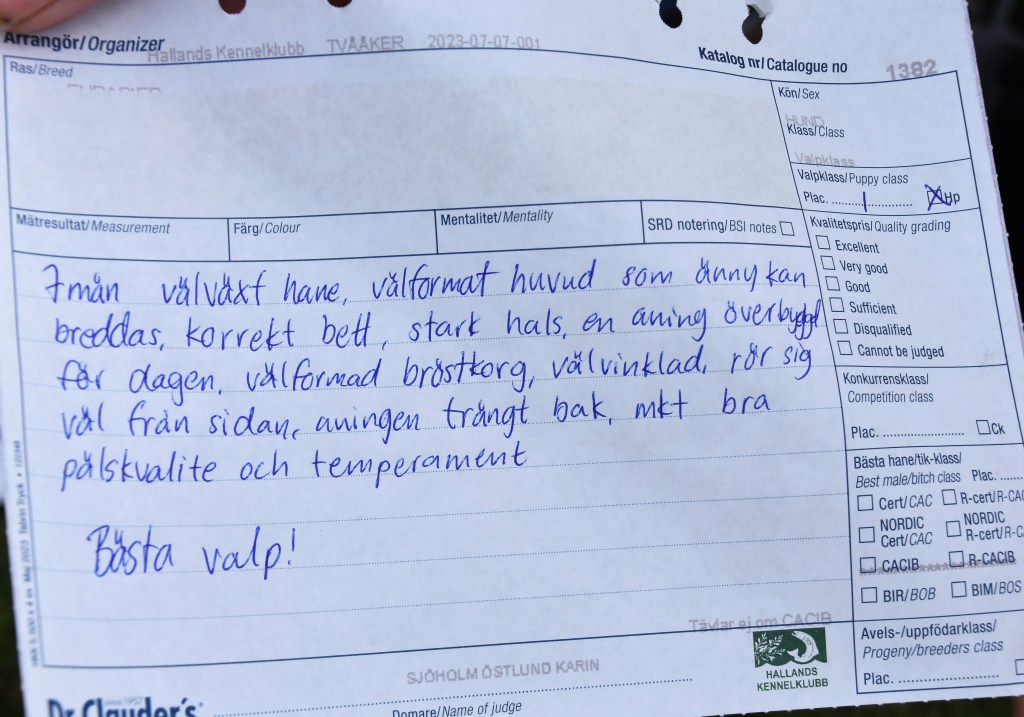 Arrangör/Organizer
Hallands Kennelklubb TVÅÅKER 2023-07-07-001
Katalog nr/Catalogue no 1382
Ras/Breed
Kön/Sex
HUND
Klass/Class
Valpklass
Valpklass/Puppy class
Plac. 1 Hp
Mätresultat/Measurement Färg/Colour Mentalitet/Mentality SRD notering/BSI notes
Kvalitetspris/Quality grading
Excellent
Very good
Good
Sufficient
Disqualified
Cannot be judged
7mån välväxt hane, välformat huvud som ännu kan
breddas, korrekt bett, stark hals, en aning överbyggd
för dagen, välformad bröstkorg, välvinklad, rör sig
väl från sidan, aningen trångt bak, mkt bra
pälskvalite och temperament
Bästa valp!
Konkurrensklass/
Competition class
Plac. Ck
Bästa hane/tik-klass/
Best male/bitch class Plac.
Cert/CAC R-cert/R-CA
NORDIC Cert/CAC NORDIC R-cert/R-C
CACIB R-CACIB
BIR/BOB BIM/BOS
Tävlar ej om CACIB
Avels-/uppfödarklass/
Progeny/breeders class
Plac.
HALLANDS
KENNELKLUBB
SJÖHOLM ÖSTLUND KARIN
Domare/Name of judge
since 1957
Dr.Clauder's